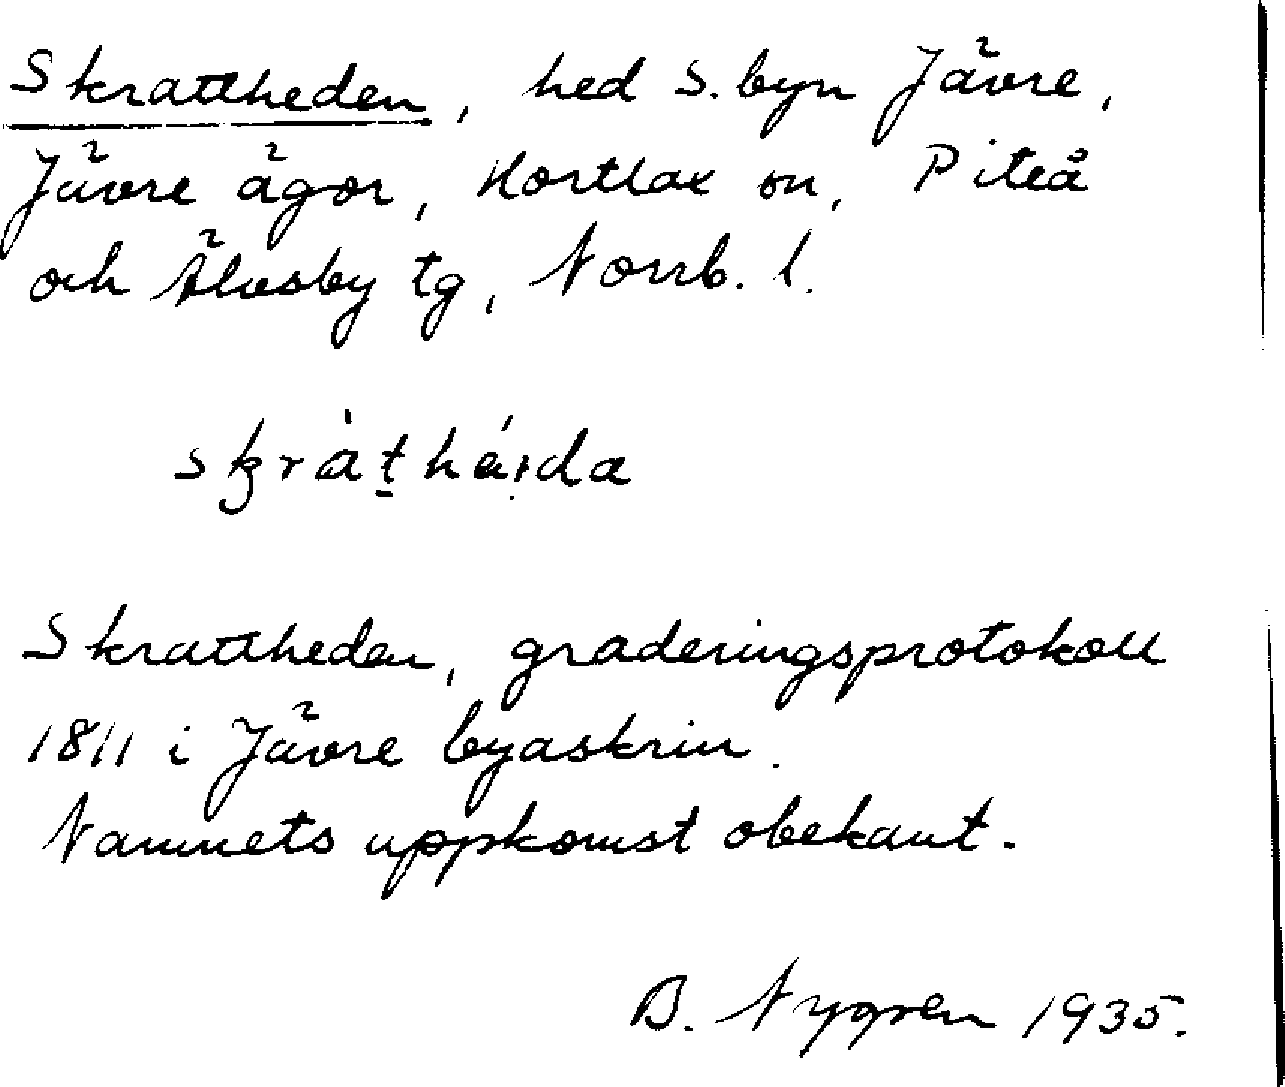 Skrattheden, hed S. byn Jävre,
Jävre ägor, Hortlax sn, Piteå
och Älvsby tg, Norrb. l.
skràt̠háıda
Skrattheden, graderingsprotokoll
1811 i Jävre byaskrin.
Namnets uppkomst obekant.
B. Nygren 1935.